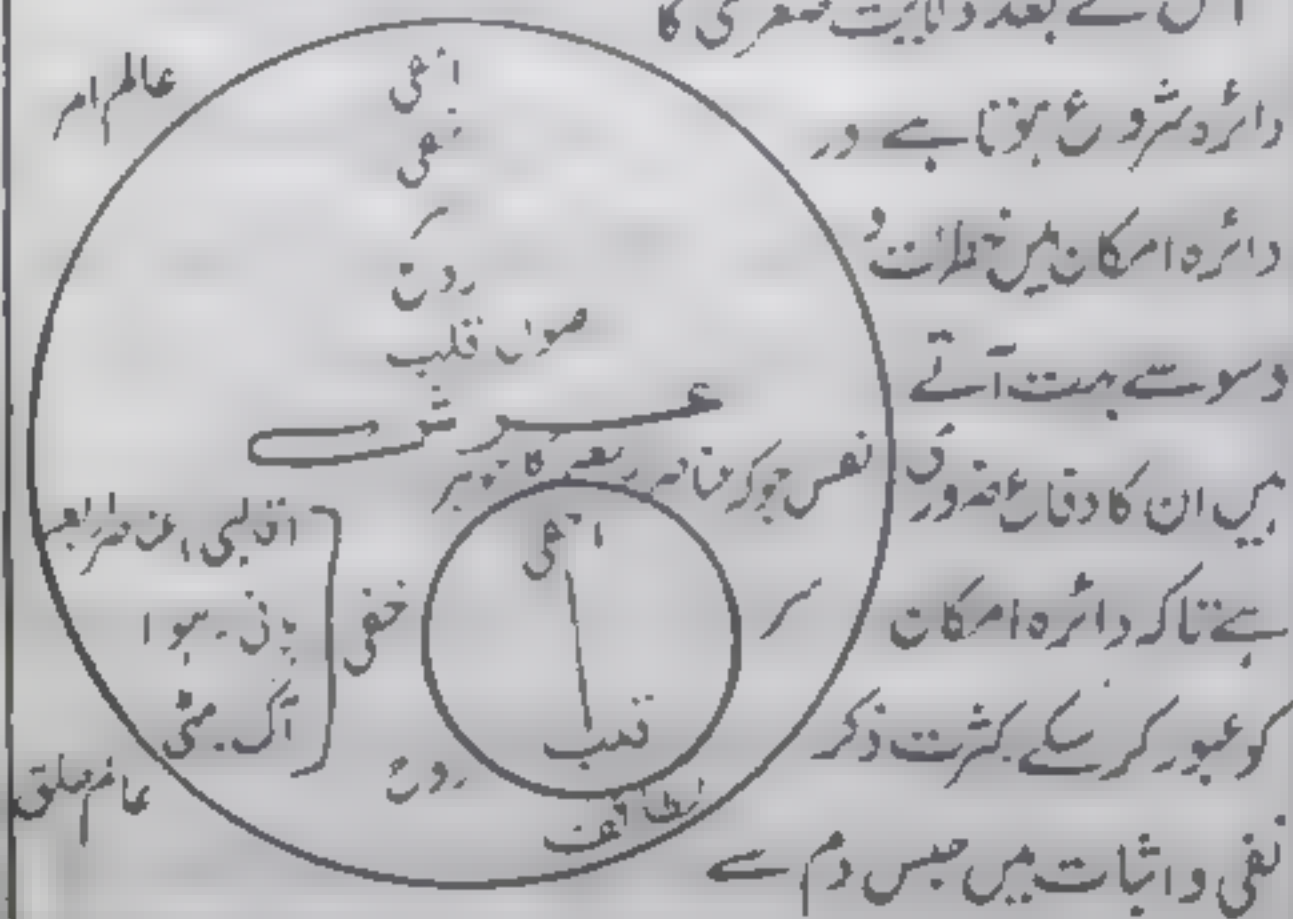 اس کے بعد ولایت صغریٰ کا
دائرہ شروع ہوتا ہے اور
دائرہ امکان میں خطرات و
وسوسے بہت آتے
ہیں ان کا دفاع ضروری
ہے تاکہ دائرہ امکان
کو عبور کر سکے۔ کثرت ذکر
نفی و اثبات میں حبس دم سے
عالم امر
اخفی
خفی
سر
روح
اصول قلب
عرش
نفس جو کہ عناصر اربعہ کا جوہر
اخفی
قلب
سر
خفی
روح
لطائف
قالبی عناصر اربعہ
پانی۔ ہوا
آگ۔ مٹی
عالم خلق